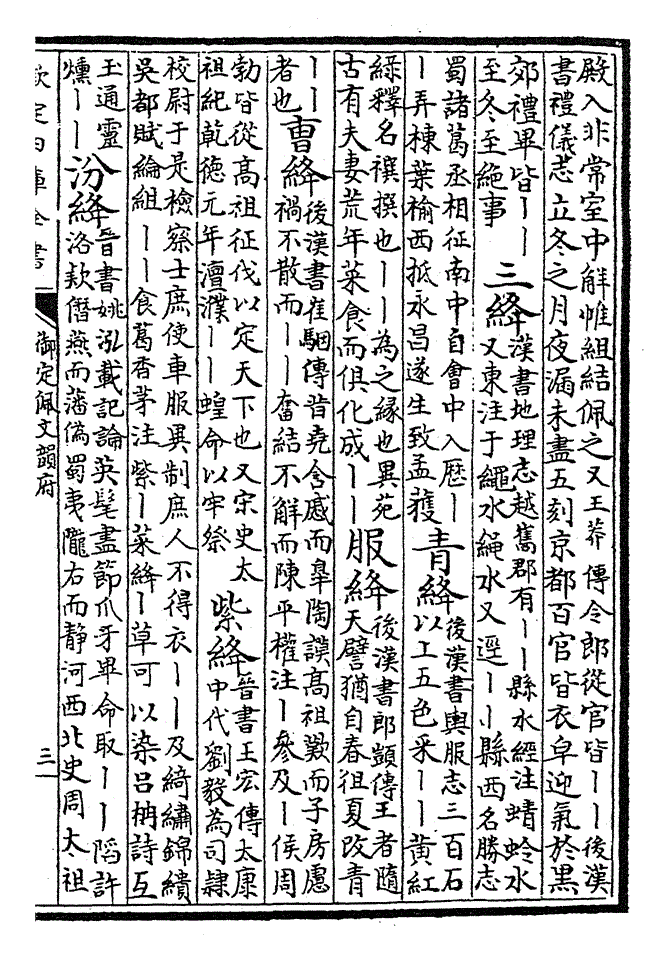 殿入非常室中解帷組結佩之又王莽傳令郎從官皆丨丨後漢
書禮儀志立冬之月夜漏未盡五刻京都百官皆衣皁迎氣於黒
郊禮畢皆丨丨
至冬至絶事
三絳
漢書地理志越嶲郡有丨丨縣水經注蜻蛉水
又東注于繩水繩水又逕丨丨縣西名勝志
蜀諸葛丞相征南中自會中入歴丨
丨弄棟葉榆西抵永昌遂生致孟獲
青絳
後漢書輿服志三百石
以上五色采丨丨黄紅
緑釋名襈撰也丨丨為之縁也異苑
古有夫妻荒年菜食而俱化成丨丨
服絳
後漢書郎顗傳王者隨
天譬猶自春徂夏改青
丨丨
者也
曹絳
後漢書崔駰傳昔堯含慼而臯陶謨髙祖歎而子房慮
禍不散而丨丨奮結不解而陳平權注丨參及丨侯周
勃皆從髙祖征伐以定天下也又宋史太
祖紀乾德元年澶濮丨丨蝗命以牢祭
紫絳
晉書王宏傳太康
中代劉毅為司隷
校尉于是檢察士庶使車服異制庶人不得衣丨丨及綺繡錦繢
吳都賦綸組丨丨食葛香茅注紫丨菜絳丨草可以染呂柟詩互
玉通靈
爞丨丨
汾絳
晉書姚泓載記論英髦盡節爪牙畢命取丨丨䧟許
洛欵僭燕而藩偽蜀夷隴右而静河西北史周太祖
欽定四庫全書
御定佩文韻府
三